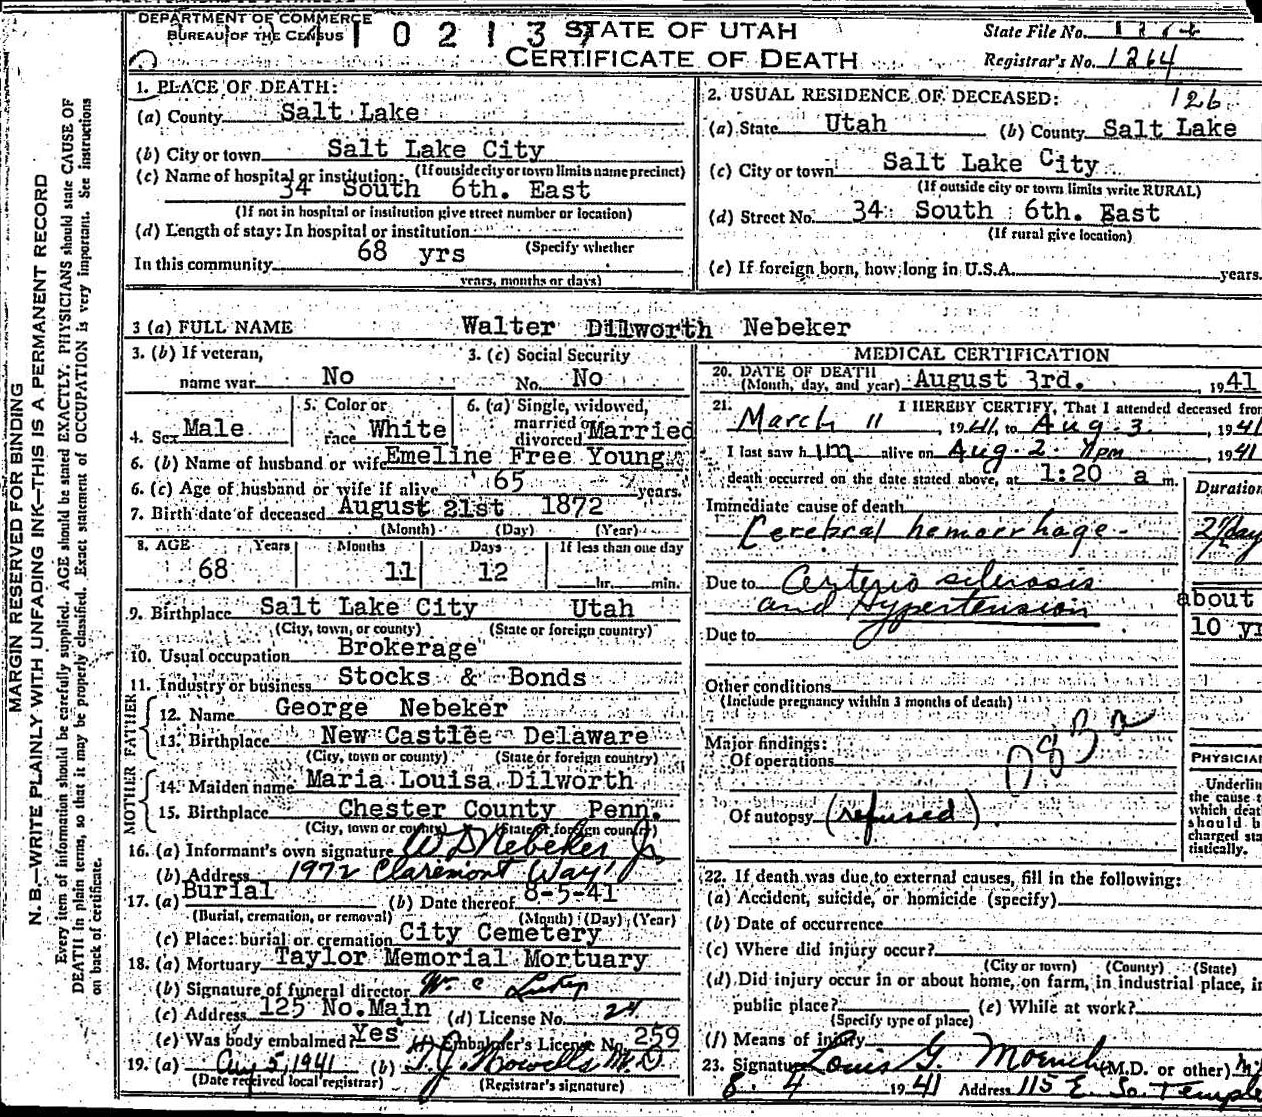 DEPARTMENT OF COMMERCE
BUREAU OF THE CENSUS
STATE OF UTAH
CERTIFICATE OF DEATH
State File No.
Registrar's No. 1264
126
MARGIN RESERVED FOR BINDING
N. B.—WRITE PLAINLY WITH UNFADING INK—THIS IS A PERMANENT RECORD
Every item of information should be carefully supplied. AGE should be stated EXACTLY. PHYSICIANS should state CAUSE OF
DEATH in plain terms, so that it may be properly classified. Exact statement of OCCUPATION is very important. See instructions
on back of certificate.
1. PLACE OF DEATH:
(a) County Salt Lake
(b) City or town Salt Lake City
(If outside city or town limits name precinct)
(c) Name of hospital or institution:
34 South 6th. East
(If not in hospital or institution give street number or location)
(d) Length of stay: In hospital or institution
(Specify whether
In this community 68 yrs
years, months or days)
2. USUAL RESIDENCE OF DECEASED:
(a) State Utah (b) County Salt Lake
(c) City or town Salt Lake City
(If outside city or town limits write RURAL)
(d) Street No. 34 South 6th. East
(If rural give location)
(e) If foreign born, how long in U.S.A. years.
3 (a) FULL NAME Walter Dilworth Nebeker
3. (b) If veteran,
name war No
3. (c) Social Security
No. No
4. Sex Male
5. Color or
race White
6. (a) Single, widowed,
married or
divorced Married
6. (b) Name of husband or wife Emeline Free Young
6. (c) Age of husband or wife if alive 65 years.
7. Birth date of deceased August 21st 1872
(Month) (Day) (Year)
8. AGE Years Months Days If less than one day
68 11 12 hr. min.
9. Birthplace Salt Lake City Utah
(City, town, or county) (State or foreign country)
10. Usual occupation Brokerage
11. Industry or business Stocks & Bonds
FATHER
12. Name George Nebeker
13. Birthplace New Castle Delaware
(City, town or county) (State or foreign country)
MOTHER
14. Maiden name Maria Louisa Dilworth
15. Birthplace Chester County Penn.
(City, town or county) (State or foreign country)
16. (a) Informant's own signature W D Nebeker Jr
(b) Address 1972 Claremont Way
17. (a) Burial (b) Date thereof 8-5-41
(Burial, cremation, or removal) (Month) (Day) (Year)
(c) Place: burial or cremation City Cemetery
18. (a) Mortuary Taylor Memorial Mortuary
(b) Signature of funeral director W. C
(c) Address 125 No. Main (d) License No. 24
(e) Was body embalmed? Yes (f) Embalmer's License No. 259
19. (a) Aug 5, 1941 (b) T. J. Howells M.D
(Date received local registrar) (Registrar's signature)
MEDICAL CERTIFICATION
20. DATE OF DEATH
(Month, day, and year) August 3rd. , 1941
21. I HEREBY CERTIFY, That I attended deceased from
March 11 , 1941, to Aug. 3. , 1941
I last saw him alive on Aug. 2. 11pm , 1941
death occurred on the date stated above, at 1:20 a m.
Duration
Immediate cause of death
Cerebral hemorrhage
Due to Arterio sclerosis
and Hypertension
about
10 yr
Due to
Other conditions
(Include pregnancy within 3 months of death)
Major findings:
Of operations
083a
PHYSICIAN
Of autopsy (refused)
Underlin
the cause t
which deat
should b
charged sta
tistically.
22. If death was due to external causes, fill in the following:
(a) Accident, suicide, or homicide (specify)
(b) Date of occurrence
(c) Where did injury occur?
(City or town) (County) (State)
(d) Did injury occur in or about home, on farm, in industrial place, in
public place? (e) While at work?
(Specify type of place)
(f) Means of injury
23. Signature Louis G. Moench (M.D. or other)
8. 4 1941 Address 115 E. So. Temple